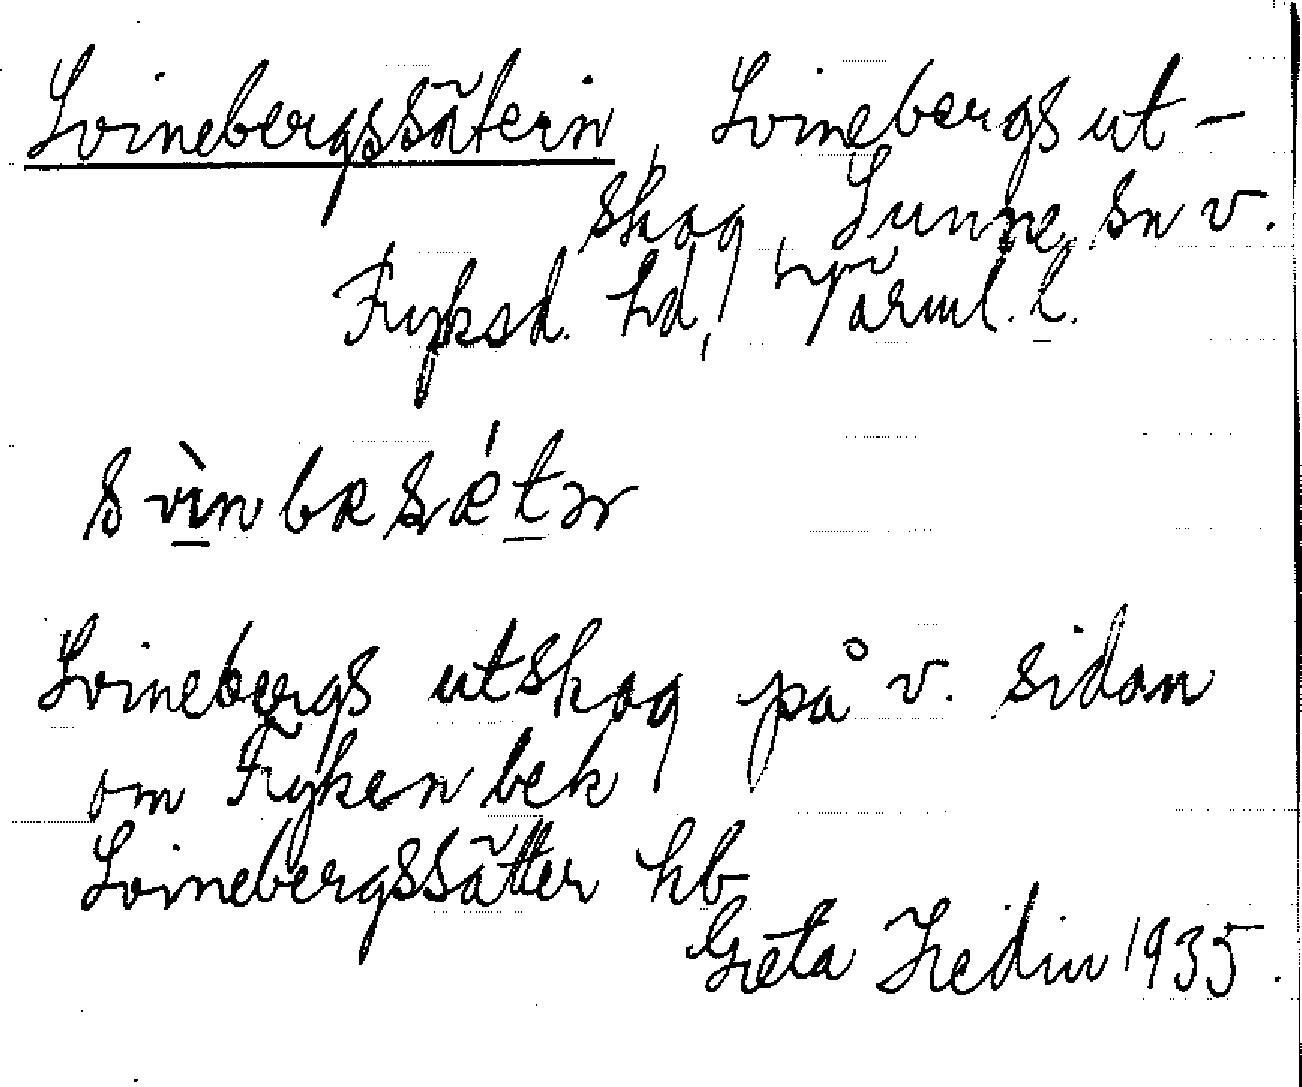 Svinebergssätern, Svinebergs ut-
skog, Sunne sn v.
Fryksd. hd, Värml. l.
svìnbæsǽtṇ
Svinebergs utskog på v. sidan
om Fryken bek
Svinebergssätter hb
Greta Hedin 1935.